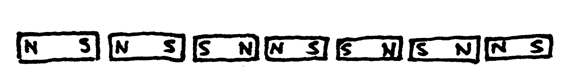 N S N S S N N S S N S N N S